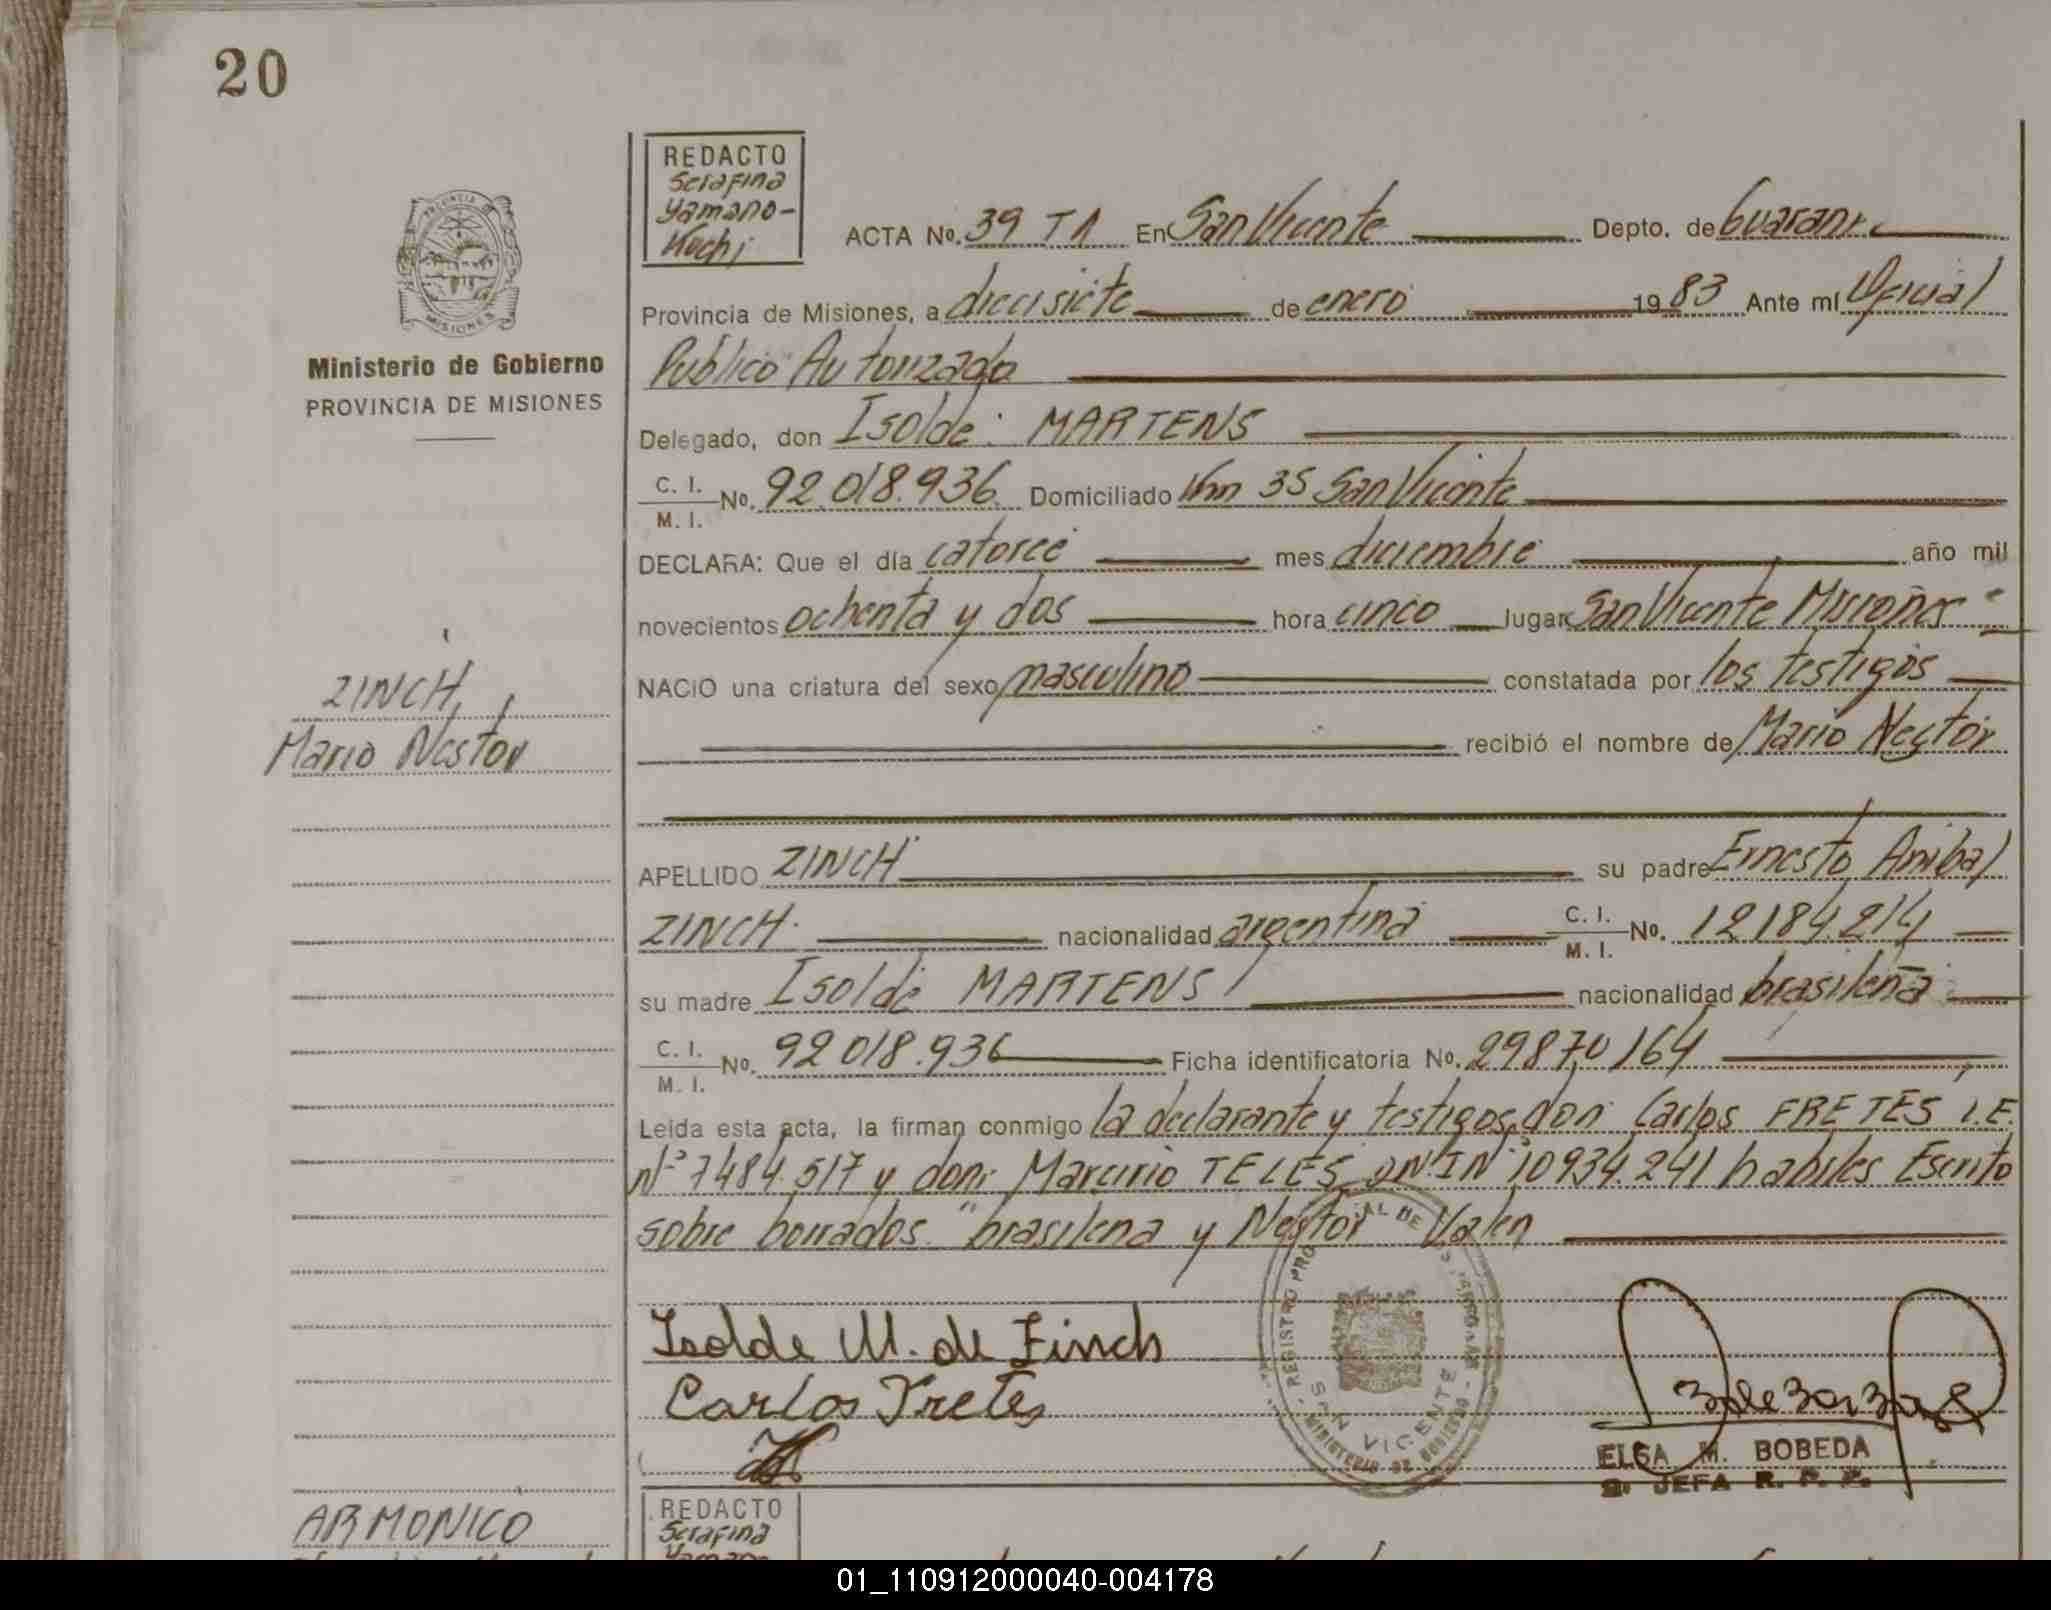 20
REDACTO
Serafina
Yamano-
Kochi
ACTA No. 39 T1 En San Vicente Depto. de Guarani
PROVINCIA DE
MISIONES
Provincia de Misiones, a diecisiete de enero 1983 Ante mí Oficial
Ministerio de Gobierno
Público Autorizado
PROVINCIA DE MISIONES
Delegado, don Isolde MARTENS
C. I.
M. I. No. 92.018.936 Domiciliado Km 35 San Vicente
DECLARA: Que el día catorce mes diciembre año mil
novecientos ochenta y dos hora cinco lugar San Vicente Misiones
NACIO una criatura del sexo masculino constatada por los testigos
ZINCH,
Mario Nestor
recibió el nombre de Mario Nestor
APELLIDO ZINCH su padre Ernesto Anibal
ZINCH nacionalidad argentina C. I.
M. I. No. 12184.214
su madre Isolde MARTENS nacionalidad brasileña
C. I.
M. I. No. 92 018.936 Ficha identificatoria No. 29870164
Leida esta acta, la firman conmigo la declarante y testigos, don: Carlos FRETES I.E.
Nº 7484.517 y don: Marcirio TELES DNIN 10934.241 habiles Escrito
sobre borrados "brasilena y Nestor Valen
Isolde M. de Zinch
Carlos Fretes
REGISTRO PRO
SAN VICENTE
MINISTERIO DE GOBIERNO
ELSA M. BOBEDA
JEFA R. P. P.
REDACTO
Serafina
ARMONICO
01_110912000040-004178